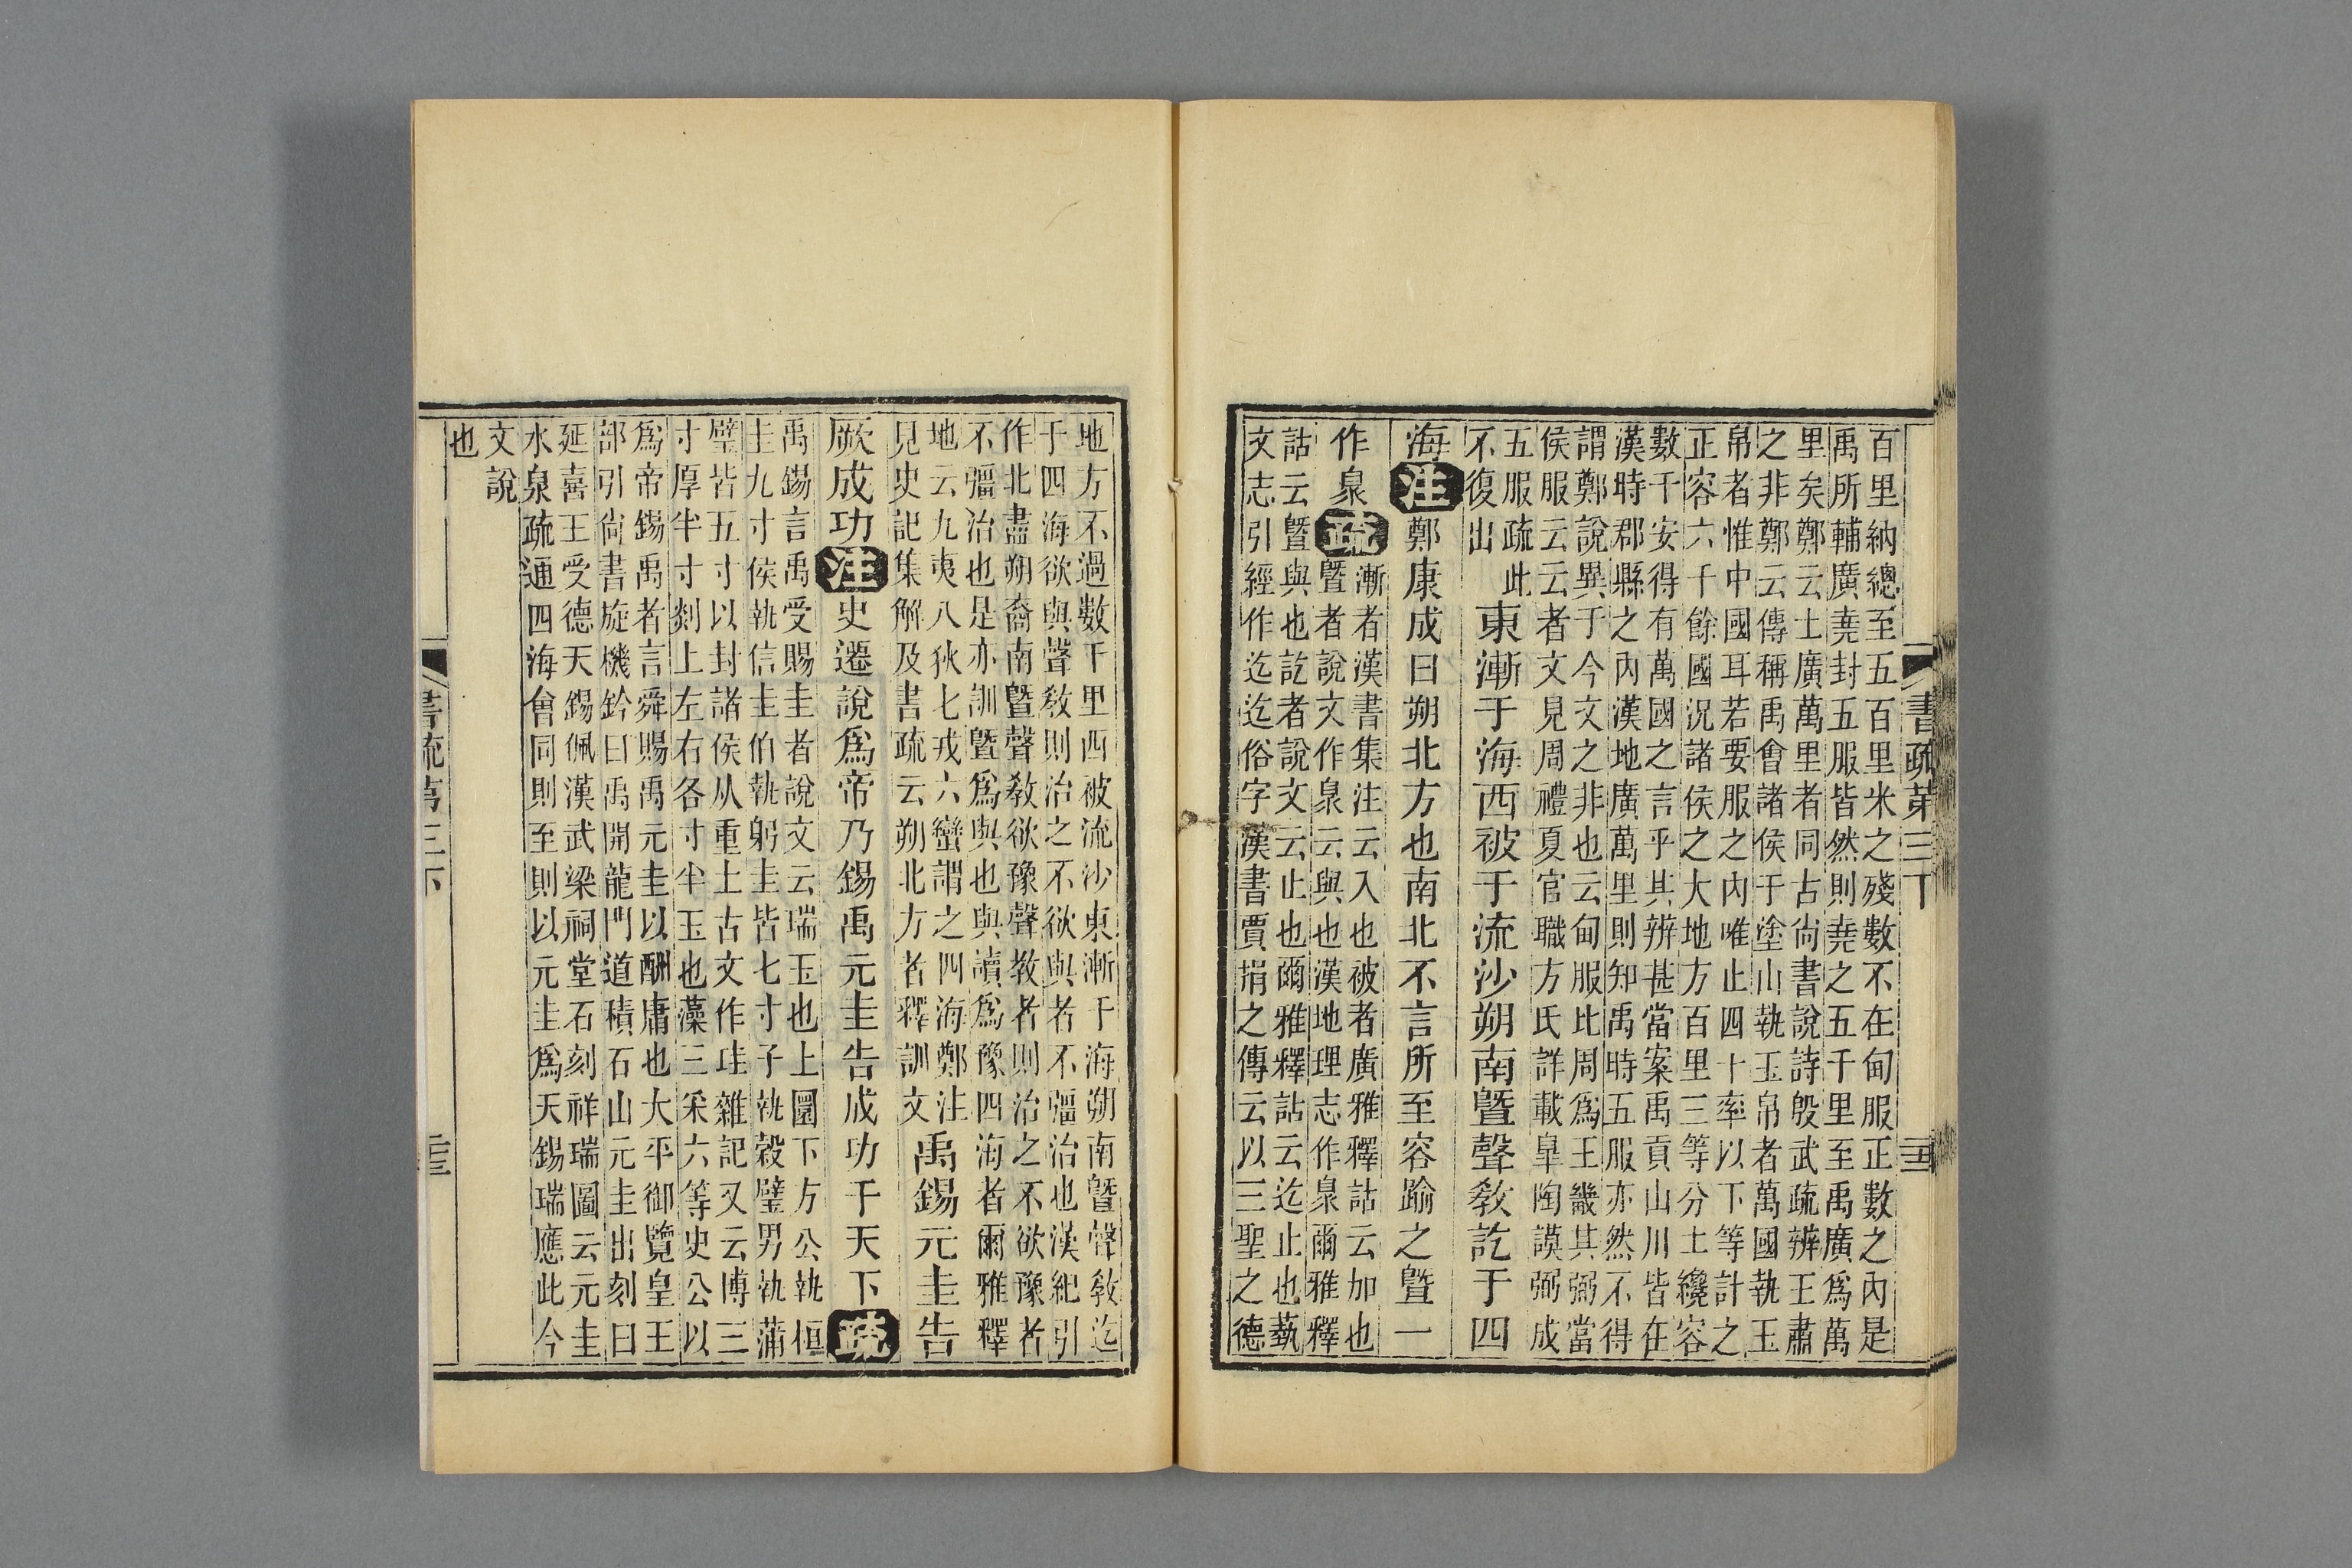 百里納總至五百里米之殘數不在甸服正數之內是
禹所輔廣堯封五服皆然則堯之五千里至禹廣爲萬
里矣鄭云士廣萬里者同古尙書說詩殷武疏辨王肅
之非鄭云傳稱禹會諸侯于塗山執玉帛者萬國執玉
帛者惟中國耳若要服之內唯止四十率以下等計之
正容六千餘國況諸侯之大地方百里三等分土纔容
數千安得有萬國之言乎其辨甚當案禹貢山川皆在
漢時郡縣之內漢地廣萬里則知禹時五服亦然不得
謂鄭說異于今文之非也云甸服比周爲王畿其弼當
侯服云云者文見周禮夏官職方氏詳載臯陶謨弼成
五服疏此
不復出
東漸于海西被于流沙朔南曁聲敎訖于四
海注鄭康成曰朔北方也南北不言所至容踰之曁一
作臮疏
漸者漢書集注云入也被者廣雅釋詁云加也
曁者說文作臮云與也漢地理志作臮爾雅釋
詁云曁與也訖者說文云止也爾雅釋詁云迄止也蓺
文志引經作迄迄俗字漢書賈捐之傳云以三聖之德
書疏第三下
地方不過數千里西被流沙東漸于海朔南曁聲敎迄
于四海欲與聲敎則治之不欲與者不彊治也漢紀引
作北盡朔裔南曁聲敎欲豫聲敎者則治之不欲豫者
不彊治也是亦訓曁爲與也與讀爲豫四海者爾雅釋
地云九夷八狄七戎六蠻謂之四海鄭注
見史記集解及書疏云朔北方者釋訓文
禹錫元圭告
厥成功注史遷說爲帝乃錫禹元圭告成功于天下疏
禹錫言禹受賜圭者說文云瑞玉也上圜下方公執恒
圭九寸侯執信圭伯執躬圭皆七寸子執穀璧男執蒲
璧皆五寸以封諸侯从重土古文作珪雜記又云博三
寸厚半寸剡上左右各寸半玉也藻三采六等史公以
爲帝錫禹者言舜賜禹元圭以酬庸也大平御覽皇王
部引尙書旋機鈐曰禹開龍門道積石山元圭出刻曰
延喜王受德天錫佩漢武梁祠堂石刻祥瑞圖云元圭
水泉疏通四海會同則至則以元圭爲天錫瑞應此今
文說
也
書疏第三下